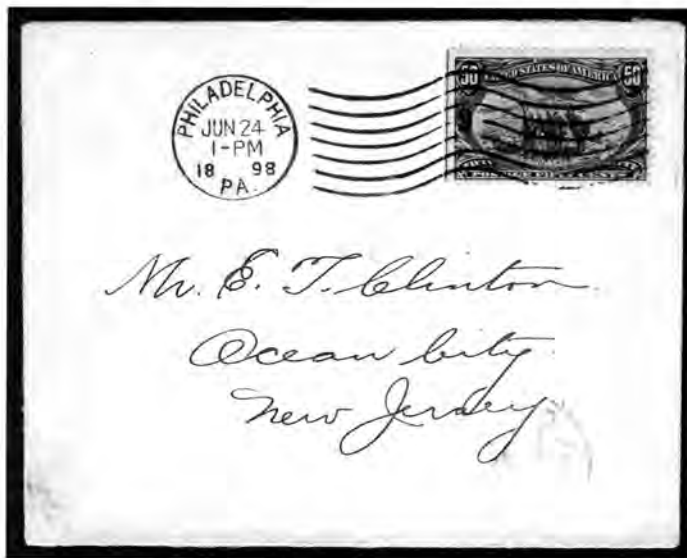 PHILADELPHIA
JUN 24
1-PM
18 98
PA.
50 UNITED STATES OF AMERICA 50
Mr. E. T. Clinton
Ocean City
New Jersey